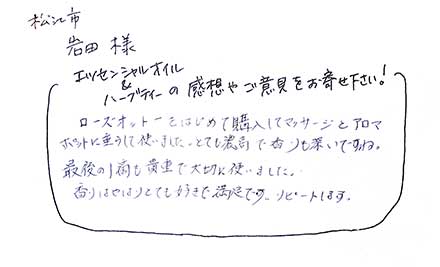 松江市
岩田 様
エッセンシャルオイル
&
ハーブティーの感想やご意見をお寄せ下さい!
ローズオットーをはじめて購入してマッサージとアロマ
ポットに重うして使いました。とても濃厚で香りも深いですね。
最後の1滴も貴重で大切に使いました。
香りはやはりとても好きで満足です。リピートします。